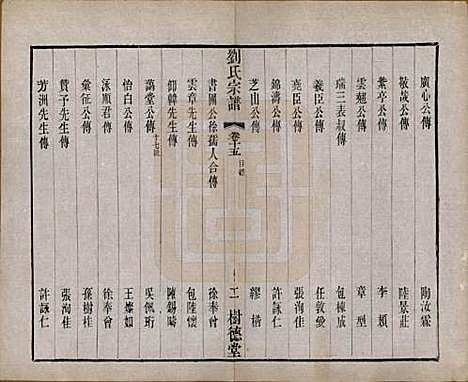 廣心公傳 陶汝霖
敬哉公傳 陸景莊
紫亭公傳 李頫
雲翹公傳 章型
瑞三表叔傳 包棟成
義臣公傳 任敦燮
堯臣公傳 張洵佳
錦濤公傳 許詠仁
芝山公傳 繆楷
劉氏宗譜 卷十五 目錄 二 樹德堂
書圃公徐孺人合傳 徐奉曾
雲章先生傳 包陸懷
仰韓先生傳 陳錫疇
藹堂公傳 十七世 吳佩珩
怡白公傳 王燦如
泳順君傳 徐奉曾
彙征公傳 孫樹桂
贊予先生傳 張洵佳
芳洲先生傳 許詠仁